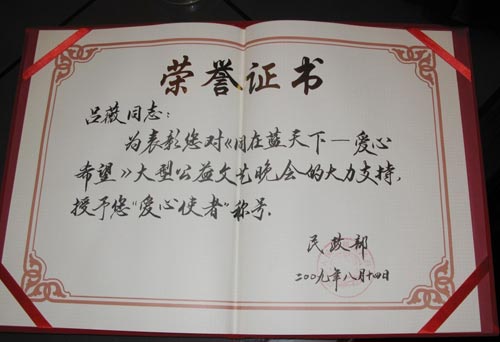 荣誉证书
吕薇同志：
为表彰您对《同在蓝天下—爱心
希望》大型公益文艺晚会的大力支持，
授予您“爱心使者”称号。
民政部
二00九年八月十四日